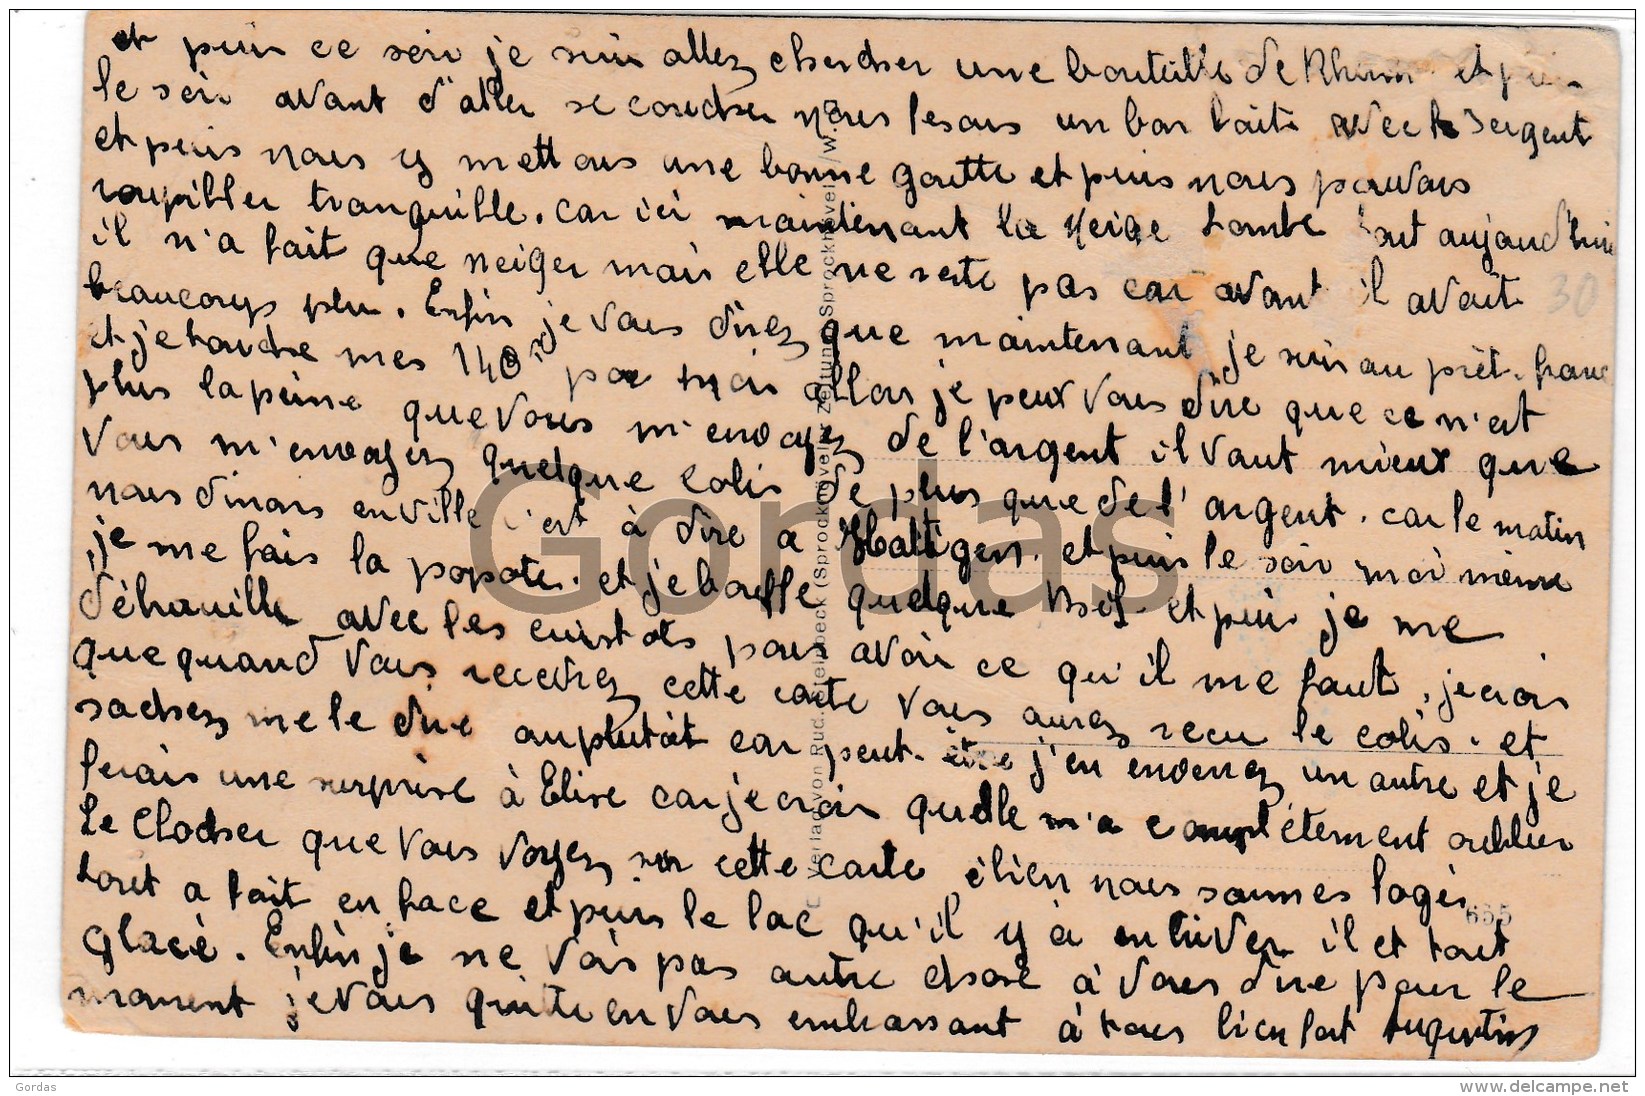 et puis ce soir je suis allez chercher une bouteille de Rhum et puis
le soir avant d'aller se coucher nous fesons un bon lait avec le Sergent
et puis nous y mettons une bonne goutte et puis nous pouvons
roupiller tranquille. car ici maintenant la neige tombe tout aujourd'hui
il n'a fait que neiger mais elle ne reste pas car avant il avait
beaucoup plu. Enfin je vous direz que maintenant je suis au prêt. franc
et je touche mes 140 par mois allors je peux vous dire que ce n'est
plus la peine que vous m'envoyez de l'argent il vaut mieux que
vous m'envoyez quelque colis de plus que de l'argent. car le matin
nous dinons en ville c'est à dire a Hattigen. et puis le soir moi même
je me fais la popote. et je bouffe quelque chose. et puis je me
débrouille avec les cuistots pour avoir ce qu'il me faut, je crois
que quand vous recevrez cette carte vous aurez recu le colis. et
sachez me le dire au plutôt car peut-être j'en enverrez un autre et je
ferais une surprise à Elise car je crois quelle m'a complétement oublier
Le Clocher que vous voyez sur cette carte et bien nous sommes logés
tout a fait en face et puis le lac qu'il y a en hiver il et tout
glacé. Enfin je ne vois pas autre chose à vous dire pour le
moment je vous quitte en vous embrassant à tous bien fort Augustin
Verlag von Rud. (Sprockhöveler Zeitung) Sprockhövel i/W.
665
30
Gordas
Gordas
www.delcampe.net